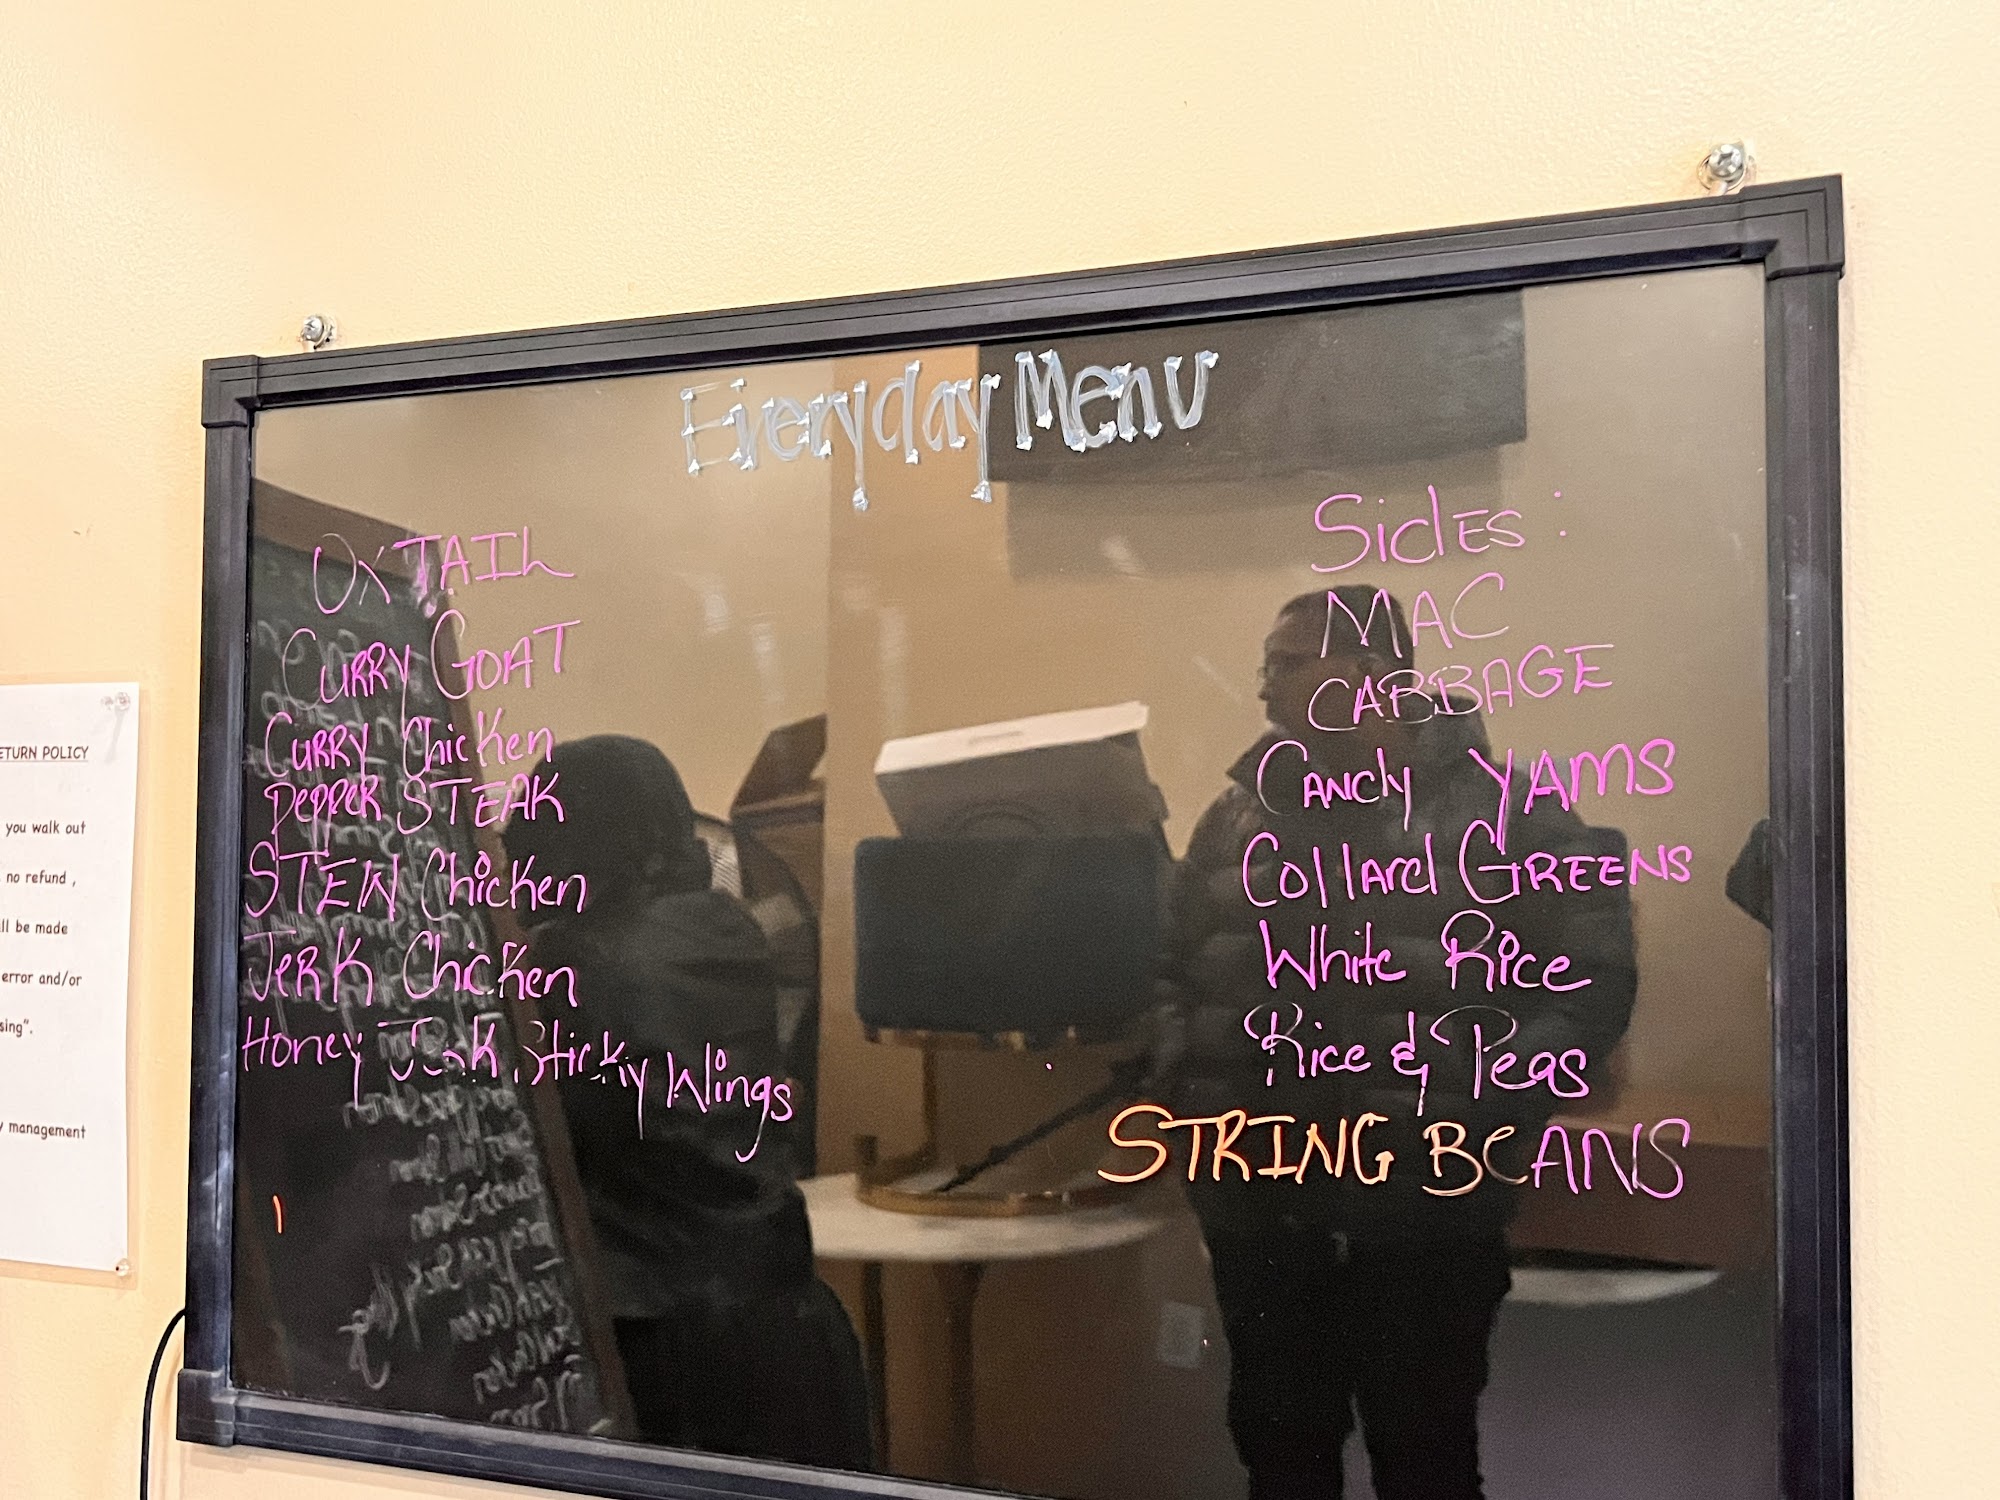 Everyday Menu
OXTAIL
CURRY GOAT
CURRY Chicken
PEPPER STEAK
STEW Chicken
JERK Chicken
Honey Jerk Sticky Wings
Sides:
MAC
CABBAGE
CANdy YAMS
Collard GREENS
White Rice
Rice & Peas
STRING BEANS
ETURN POLICY
you walk out
no refund ,
ll be made
error and/or
sing".
y management